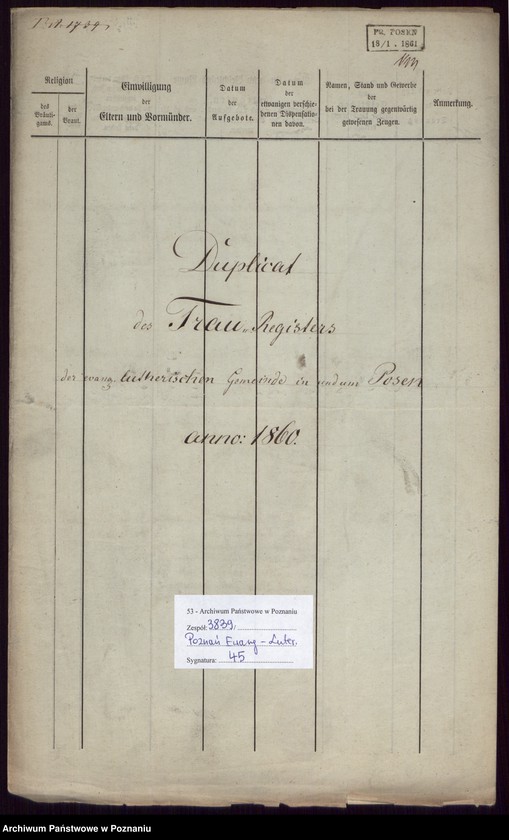 PR. POSEN
18/1. 1861
Religion
des
Bräuti-
gams.
der
Braut.
Einwilligung
der
Eltern und Vormünder.
Datum
der
Aufgebote.
Datum
der
etwanigen verschie-
denen Dispensatio-
nen davon.
Namen, Stand und Gewerbe
der
bei der Trauung gegenwärtig
gewesenen Zeugen.
Anmerkung.
Duplicat
des Trau-Registers
der evang. lutherischen Gemeinde in und um Posen
anno: 1860.
53 - Archiwum Państwowe w Poznaniu
Zespół: 3839,
Poznań Ewang - Luter.
Sygnatura: 45
Archiwum Państwowe w Poznaniu